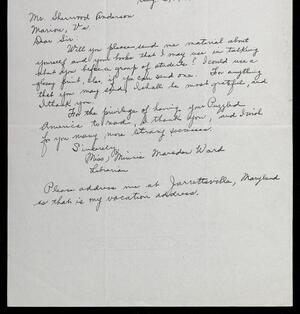 Mr. Sherwood Anderson
Marion, Va.
Dear Sir
Will you please send me material about
yourself and your books that I may use in talking
about you before a group of students? I could use a
photo, etc. if you can send one. For anything
that you may send, I shall be most grateful, and
I thank you.
For the privilege of having your Puzzled
America to read, I thank you, and I wish
for you many more literary successes.
Sincerely
Miss, Minnie Marsden Ward
Librarian
Please address me at Jarrettsville, Maryland
as that is my vacation address.